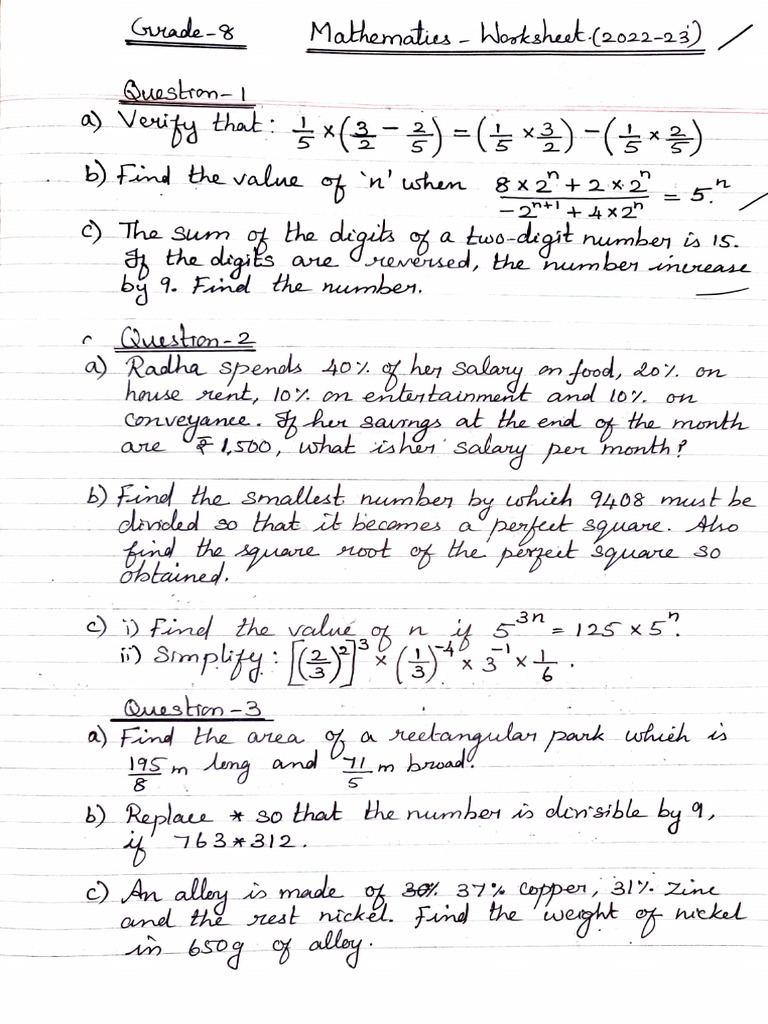 Grade-8 Mathematics - Worksheet (2022-23)
Question-1
a) Verify that: 1/5 × (3/2 - 2/5) = (1/5 × 3/2) - (1/5 × 2/5)
b) Find the value of 'n' when (8 × 2^n + 2 × 2^n)/(-2^(n+1) + 4 × 2^n) = 5^n.
c) The sum of the digits of a two-digit number is 15.
If the digits are reversed, the number increase
by 9. Find the number.
Question-2
a) Radha spends 40% of her salary on food, 20% on
house rent, 10% on entertainment and 10% on
conveyance. If her savings at the end of the month
are ₹ 1,500, what is her salary per month?
b) Find the smallest number by which 9408 must be
divided so that it becomes a perfect square. Also
find the square root of the perfect square so
obtained.
c) i) Find the value of n if 5^(3n) = 125 × 5^n.
ii) Simplify: [(2/3)^2]^3 × (1/3)^-4 × 3^-1 × 1/6.
Question-3
a) Find the area of a rectangular park which is
195/8 m long and 71/5 m broad.
b) Replace * so that the number is divisible by 9,
if 763*312.
c) An alloy is made of 30% 37% copper, 31% zinc
and the rest nickel. Find the weight of nickel
in 650g of alloy.